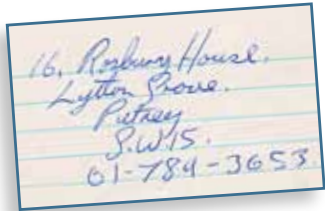 16, Rosbury House.
Lytton Grove.
Putney
S.W15.
01-789-3653